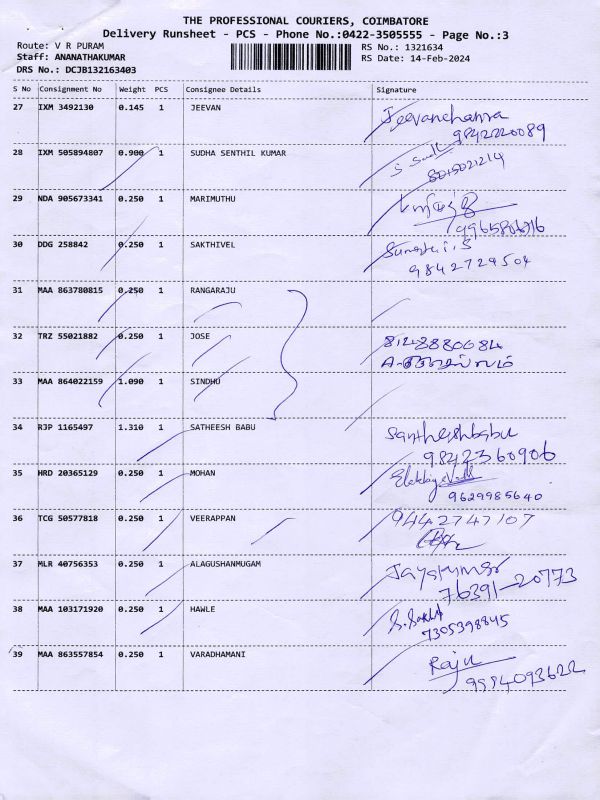 THE PROFESSIONAL COURIERS, COIMBATORE
Delivery Runsheet - PCS - Phone No.:0422-3505555 - Page No.:3
Route: V R PURAM RS No.: 1321634
Staff: ANANATHAKUMAR RS Date: 14-Feb-2024
DRS No.: DCJB132163403
S No Consignment No Weight PCS Consignee Details Signature
27 IXM 3492130 0.145 1 JEEVAN Jeevanchanra
9842220089
28 IXM 505894807 0.900 1 SUDHA SENTHIL KUMAR
8015021214
29 NDA 905673341 0.250 1 MARIMUTHU
9965806716
30 DDG 258842 0.250 1 SAKTHIVEL
9842729504
31 MAA 863780815 0.250 1 RANGARAJU
32 TRZ 55021882 0.250 1 JOSE 8124888068​4
33 MAA 864022159 1.090 1 SINDHU
34 RJP 1165497 1.310 1 SATHEESH BABU Santheshbabu
9842360906
35 HRD 20365129 0.250 1 MOHAN
9629985640
36 TCG 50577818 0.250 1 VEERAPPAN 9442747107
37 MLR 40756353 0.250 1 ALAGUSHANMUGAM Jayakumar
76391-20773
38 MAA 103171920 0.250 1 HAWLE S. Sakthi
7305398845
39 MAA 863557854 0.250 1 VARADHAMANI Raju
9994093622